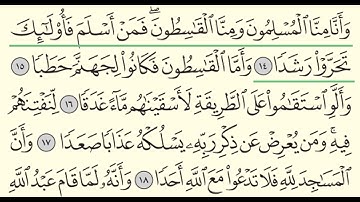 وَأَنَّا مِنَّا ٱلْمُسْلِمُونَ وَمِنَّا ٱلْقَٰسِطُونَ ۖ فَمَنْ أَسْلَمَ فَأُو۟لَٰٓئِكَ
تَحَرَّوْا۟ رَشَدًا ١٤ وَأَمَّا ٱلْقَٰسِطُونَ فَكَانُوا۟ لِجَهَنَّمَ حَطَبًا ١٥
وَأَلَّوِ ٱسْتَقَٰمُوا۟ عَلَى ٱلطَّرِيقَةِ لَأَسْقَيْنَٰهُم مَّآءً غَدَقًا ١٦ لِّنَفْتِنَهُمْ
فِيهِ ۚ وَمَن يُعْرِضْ عَن ذِكْرِ رَبِّهِۦ يَسْلُكْهُ عَذَابًا صَعَدًا ١٧ وَأَنَّ
ٱلْمَسَٰجِدَ لِلَّهِ فَلَا تَدْعُوا۟ مَعَ ٱللَّهِ أَحَدًا ١٨ وَأَنَّهُۥ لَمَّا قَامَ عَبْدُ ٱللَّهِ